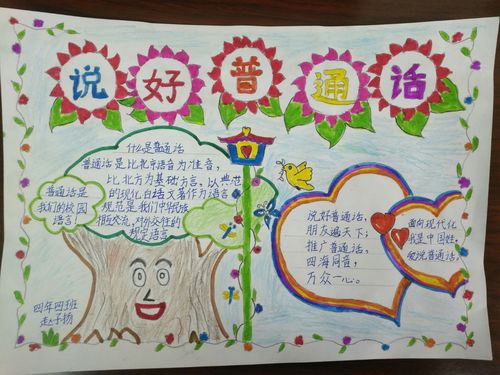 说好普通话
什么是普通话
普通话是比北京语音为准音，
比北方为基础方言、以典范
的现化白话文著作为语言
规范是我们中华民族
相互交流、对外交往的
规定语言
普通话是
我们的校园
语言
说好普通话，
朋友遍天下；
推广普通话，
四海同音，
万众一心。
面向现代化
我是中国娃，
爱说普通话，
四年四班
赵子扬